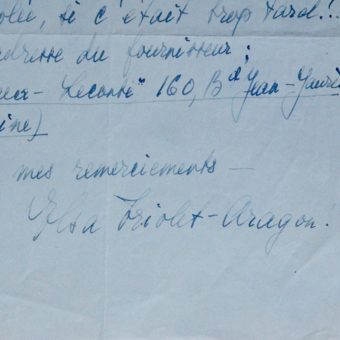 olée, si c'était trop tard!..
adresse du fournisseur:
Leconte" 160, Bd Jean-Jaurès
ine)
mes remerciements —
Elsa Triolet-Aragon.